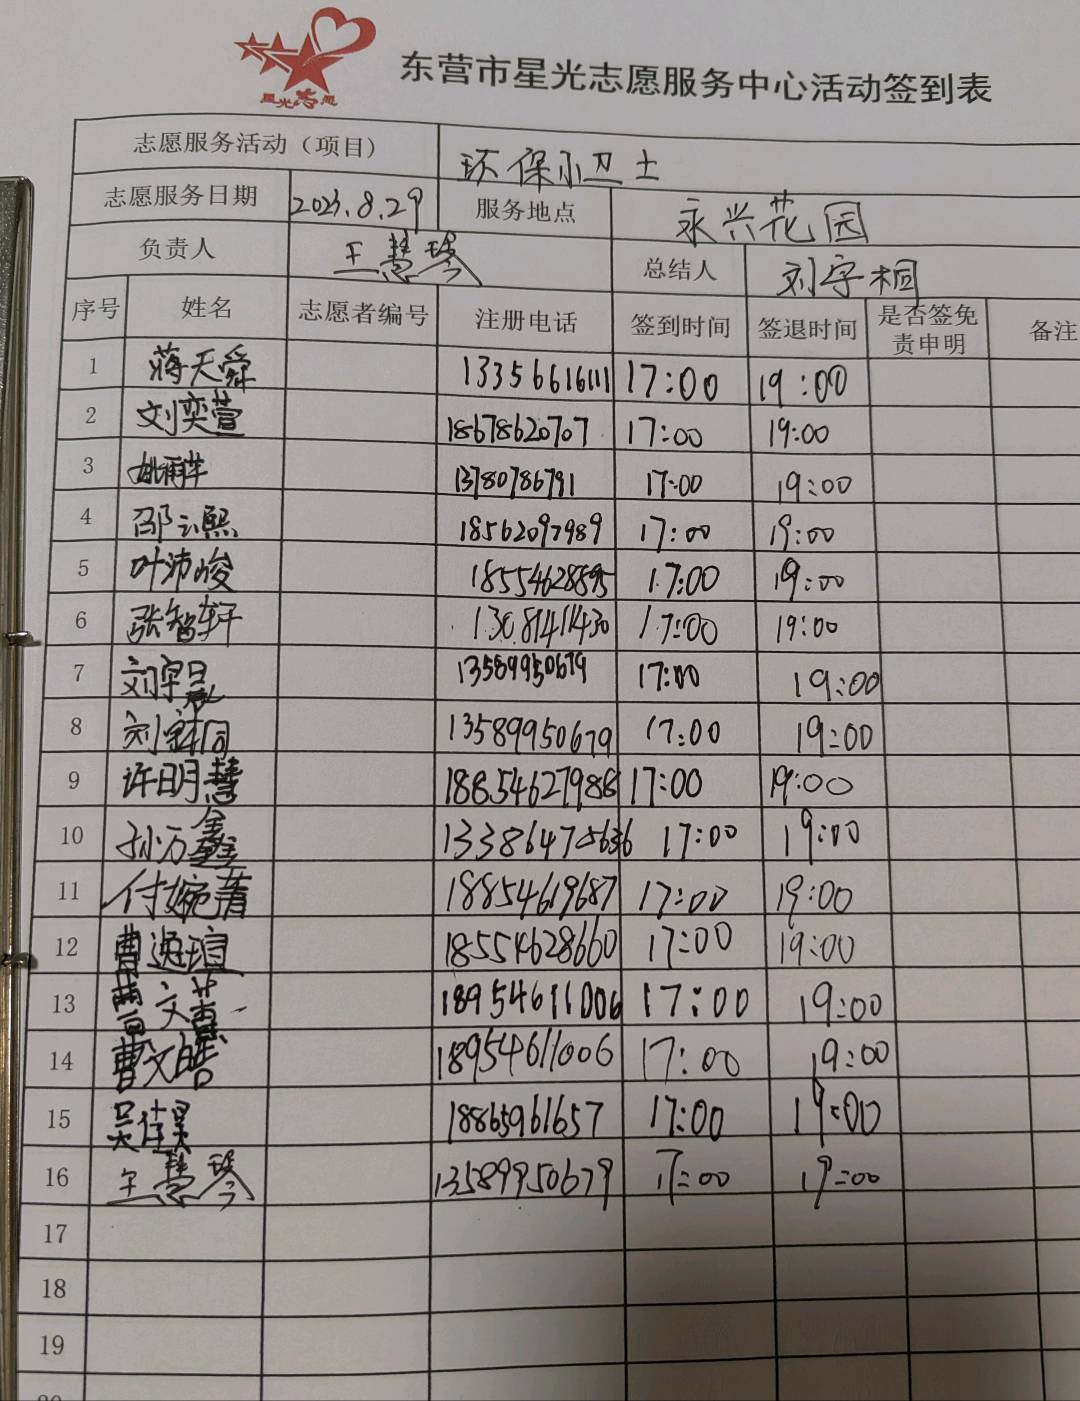 星光志愿
东营市星光志愿服务中心活动签到表
志愿服务活动（项目） 环保小卫士
志愿服务日期 2023.8.29 服务地点 永兴花园
负责人 王慧琴 总结人 刘宇桐
序号 姓名 志愿者编号 注册电话 签到时间 签退时间 是否签免责申明 备注
1 蒋天舜 13356616111 17:00 19:00
2 刘奕萱 18678620707 17:00 19:00
3 13780786791 17:00 19:00
4 邵云熙 18562097989 17:00 19:00
5 叶沛峻 18554628895 17:00 19:00
6 张智轩 13081411430 17:00 19:00
7 刘宇晨 13589950679 17:00 19:00
8 刘宇桐 13589950679 17:00 19:00
9 许明慧 18854627988 17:00 19:00
10 孙万鑫 17:00 19:00
11 付婉菁 18854619687 17:00 19:00
12 曹逸瑄 18554628660 17:00 19:00
13 曹文慧 18954611006 17:00 19:00
14 曹文皓 18954611006 17:00 19:00
15 吴佳昊 18865961657 17:00 19:00
16 王慧琴 13589950679 17:00 19:00
17
18
19
20